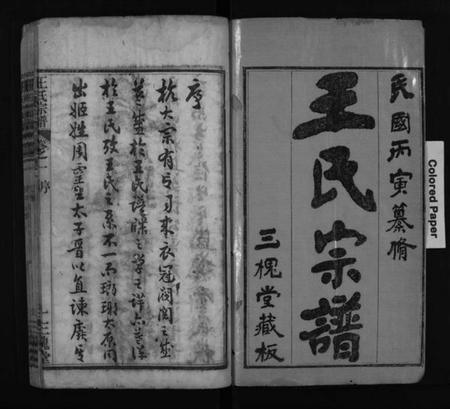 民國丙寅纂脩
王氏宗譜
三槐堂藏板
Colored Paper
序
杭大宗有言自来衣冠閥閱之盛
莫盛於王氏譜牒之學
於王氏攷王氏之系不一而瑯琊太原同
出姬姓周靈王太子晉以直諫廢
王氏宗譜 卷之一 序
三槐堂